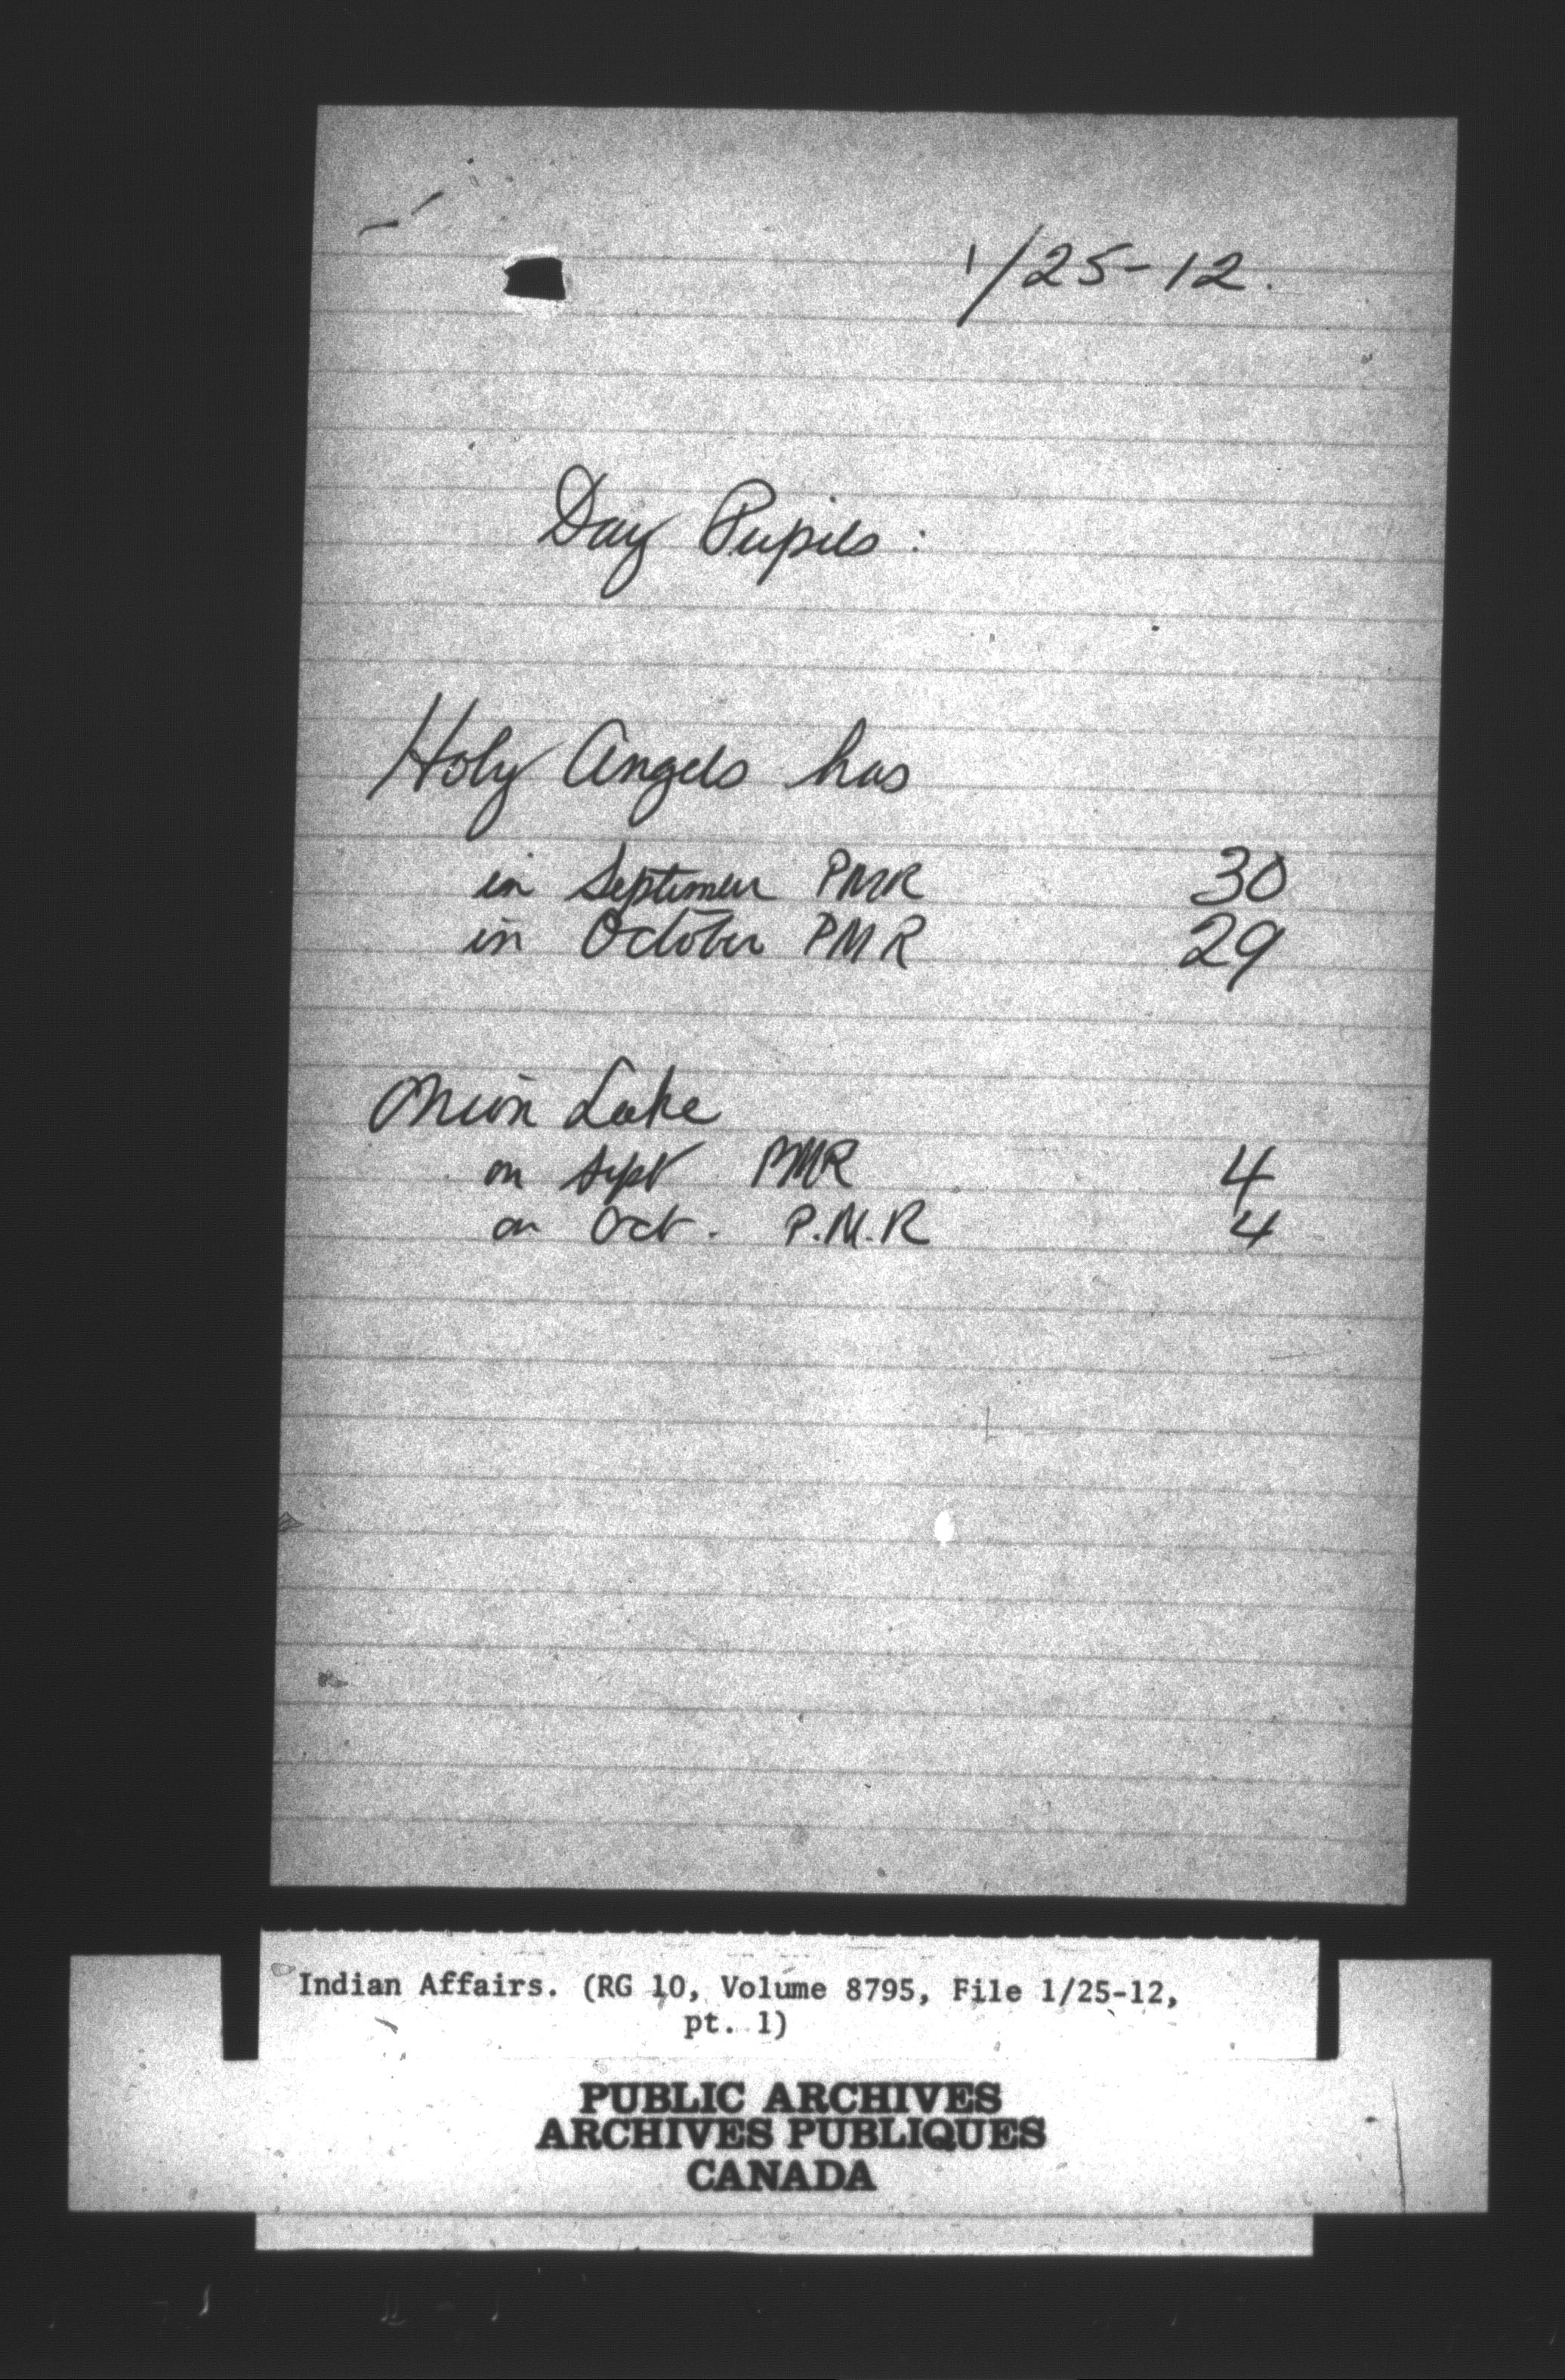 1/25-12.
Day Pupils:
Holy Angels has
in September PMR 30
in October PMR 29
Onion Lake
on Sept PMR 4
on Oct. P.M.R 4
Indian Affairs. (RG 10, Volume 8795, File 1/25-12,
pt. 1)
PUBLIC ARCHIVES
ARCHIVES PUBLIQUES
CANADA